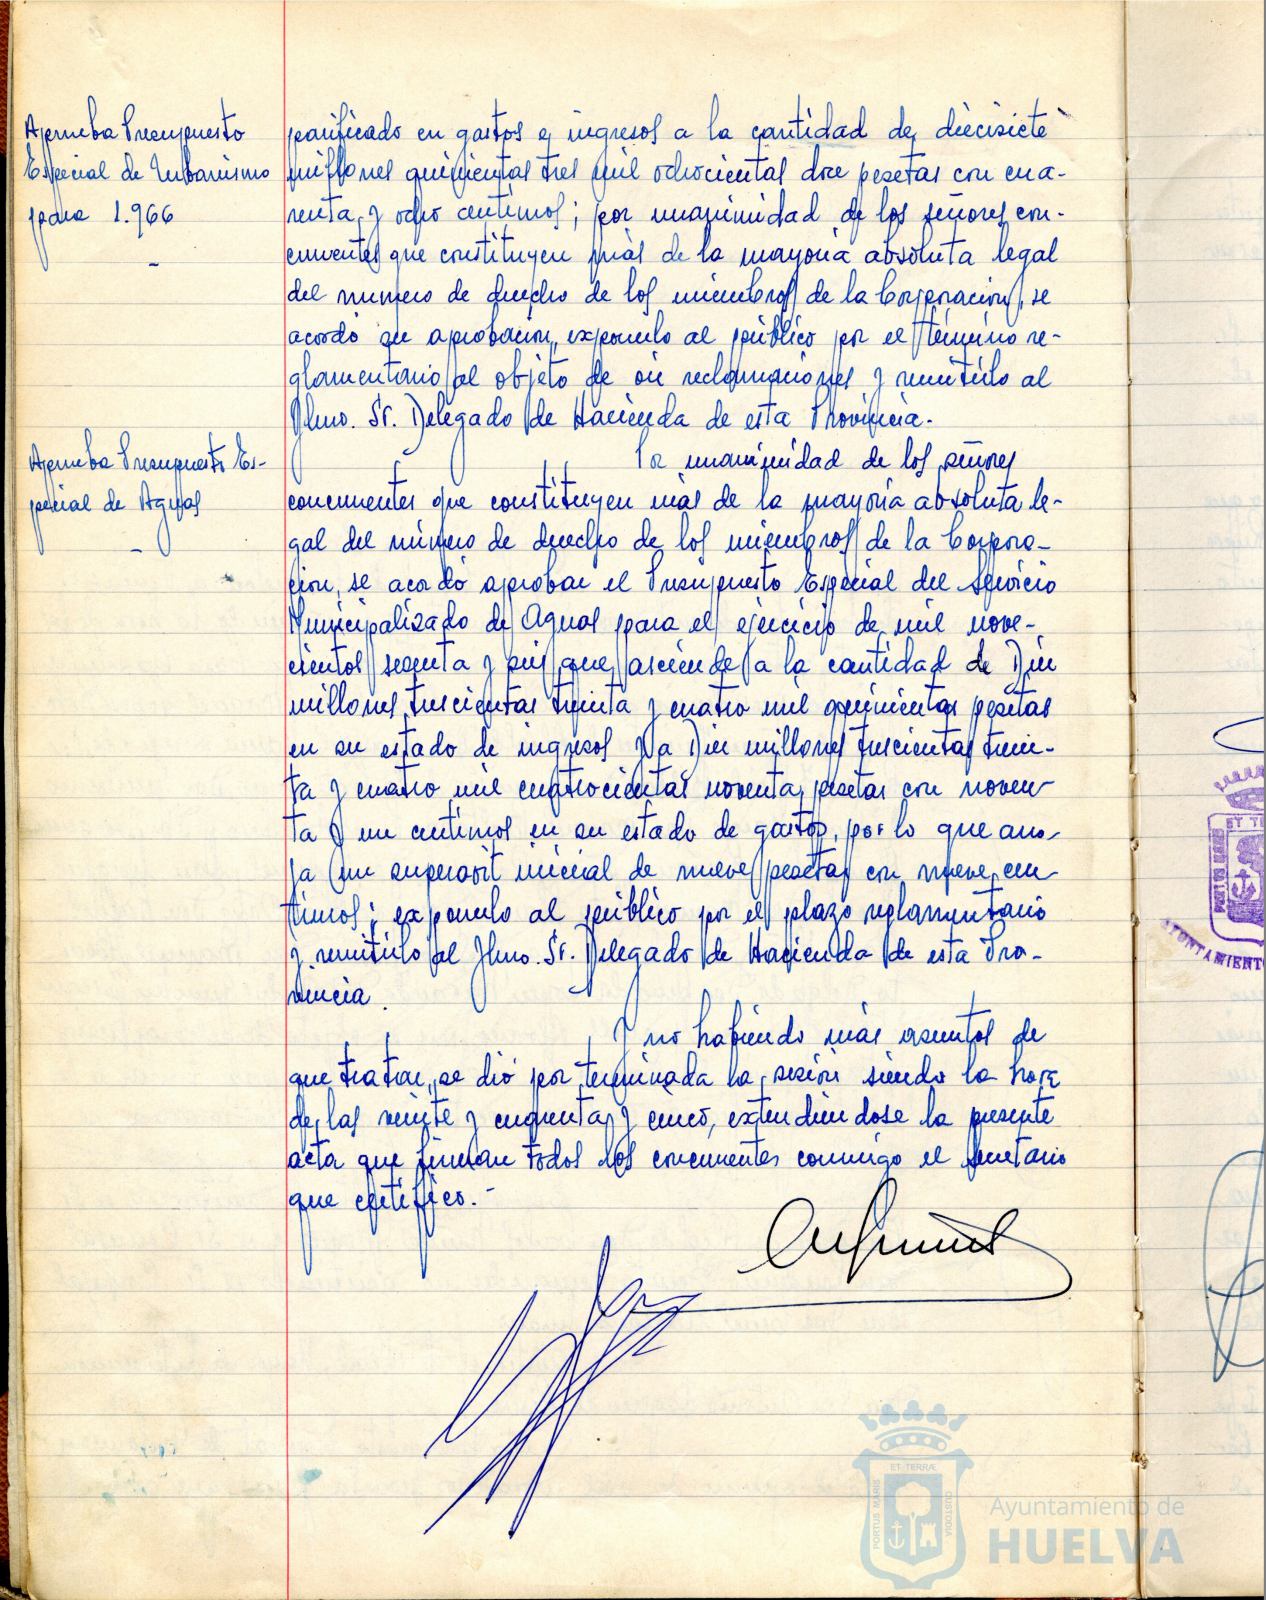 Aprueba Presupuesto
Especial de Urbanismo
para 1.966
parificado en gastos e ingresos a la cantidad de diecisiete
millones quinientas tres mil ochocientas doce pesetas con cua-
renta y ocho centimos; por unanimidad de los señores con-
currentes que constituyen más de la mayoria absoluta legal
del numero de derecho de los miembros de la Corporacion, se
acordó su aprobacion, exponerlo al público por el término re-
glamentario al objeto de oir reclamaciones y remitirlo al
Ilmo. Sr. Delegado de Hacienda de esta Provincia.
Aprueba Presupuesto Es-
pecial de Aguas
Por unanimidad de los señores
concurrentes que constituyen más de la mayoría absoluta le-
gal del número de derecho de los miembros de la Corpora-
cion, se acordó aprobar el Presupuesto Especial del Servicio
Municipalizado de Aguas para el ejercicio de mil nove-
cientos sesenta y seis que asciende a la cantidad de Diez
millones trescientas treinta y cuatro mil quinientas pesetas
en su estado de ingresos y a Diez millones trescientas trein-
ta y cuatro mil cuatrocientas noventa pesetas con noven-
ta y un centimos en su estado de gastos, por lo que arro-
ja un superavit inicial de nueve pesetas con nueve cen-
timos; exponerlo al público por el plazo reglamentario
y remitirlo al Ilmo. Sr. Delegado de Hacienda de esta Pro-
vincia.
Y no habiendo más asuntos de
que tratar, se dió por terminada la sesión siendo la hora
de las veinte y cincuenta y cinco, extendiendose la presente
acta que firman todos los concurrentes conmigo el secretario
que certifico.-
ET TERRÆ
PORTUS MARIS
CUSTODIA
Ayuntamiento de
HUELVA
PORTUS MARIS
ET TE
AYUNTAMIENTO